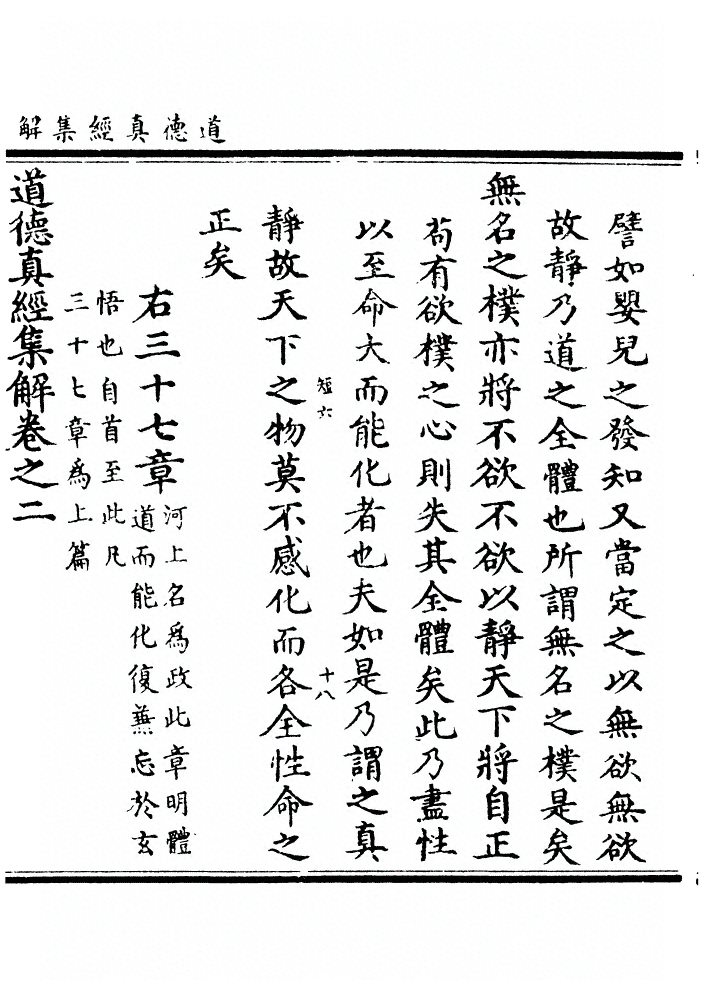 道德真經集解
譬如嬰兒之發知又當定之以無欲無欲
故靜乃道之全體也所謂無名之樸是矣
無名之樸亦將不欲不欲以靜天下將自正
苟有欲樸之心則失其全體矣此乃盡性
以至命大而能化者也夫如是乃謂之真
短六
十八
靜故天下之物莫不感化而各全性命之
正矣
右三十七章
河上名爲政此章明體
道而能化復兼忘於玄
悟也自首至此凡
三十七章爲上篇
道德真經集解卷之二